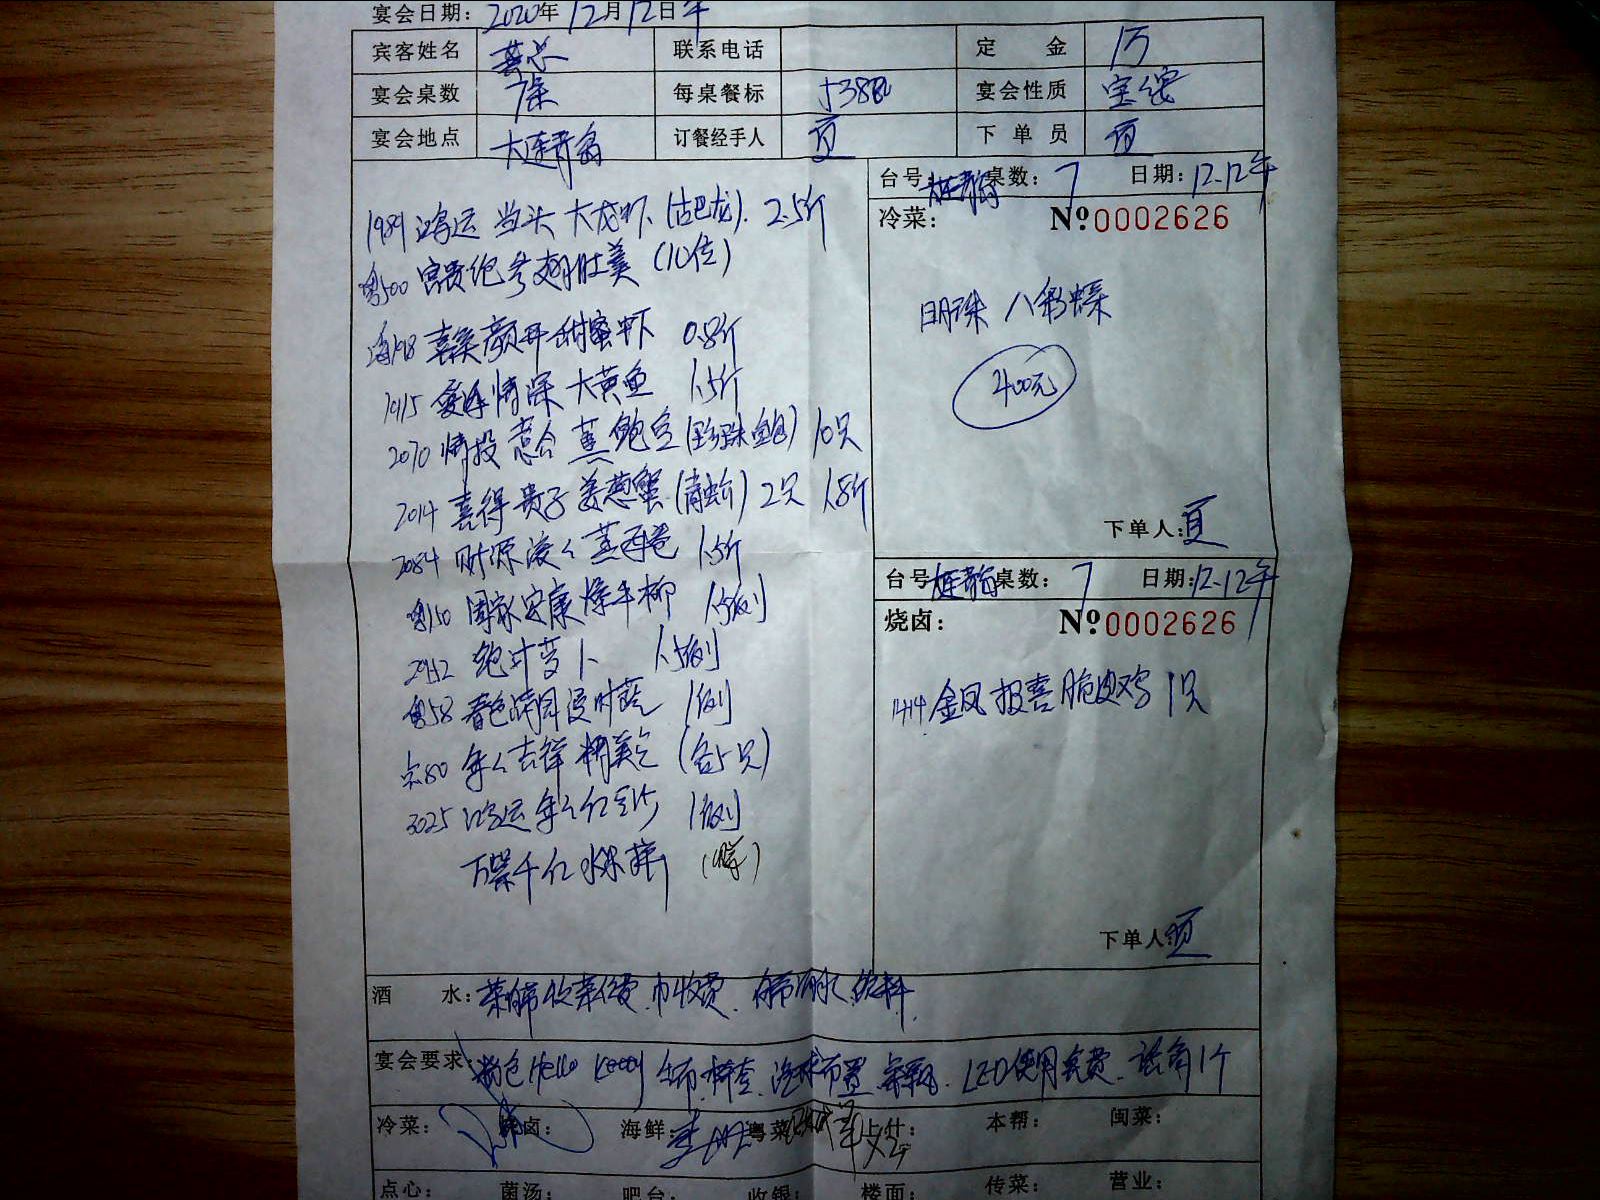 宴会日期: 2020年12月12日午
宾客姓名 总 联系电话 定 金 1万
宴会桌数 7桌 每桌餐标 宴会性质 宝宴
宴会地点 大连青岛 订餐经手人 下单员
台号: 桌数: 7 日期: 12.12午
冷菜: Nº 0002626
1989 鸿运当头大龙虾(古巴龙). 2.5斤
粤500 富贵鲍参翅肚羹 (10位)
海198 喜笑颜开甜蜜虾 0.8斤
情深大黄鱼 1.5斤
2070 情投意合蒸鲍 (珍珠鲍) 10只
2014 喜得贵子姜葱蟹 (青蟹) 2只 1.8斤
2084 财源滚々蒸 1.5斤
粤150 国家安康爆牛柳 1.5例
鲍汁萝卜 1.5例
粤58 春色满园时蔬 1例
点80 年々吉祥精美点 (各5只)
3025 鸿运年年红豆沙 1例
万紫千红水果拼 (赠)
明珠八彩碟
400元
下单人:
台号: 桌数: 7 日期: 12.12午
烧卤: Nº 0002626
1414 金凤报喜脆皮鸡 1只
下单人:
酒 水: 茶 收费. 巾收费. 自带酒水饮料.
宴会要求: 粉色Hello Ketty 布置. LED使用免费. 1个
冷菜: 烧卤: 海鲜: 粤菜 上什: 本帮: 闽菜:
点心: 菌汤: 吧台: 收银: 楼面: 传菜: 营业: